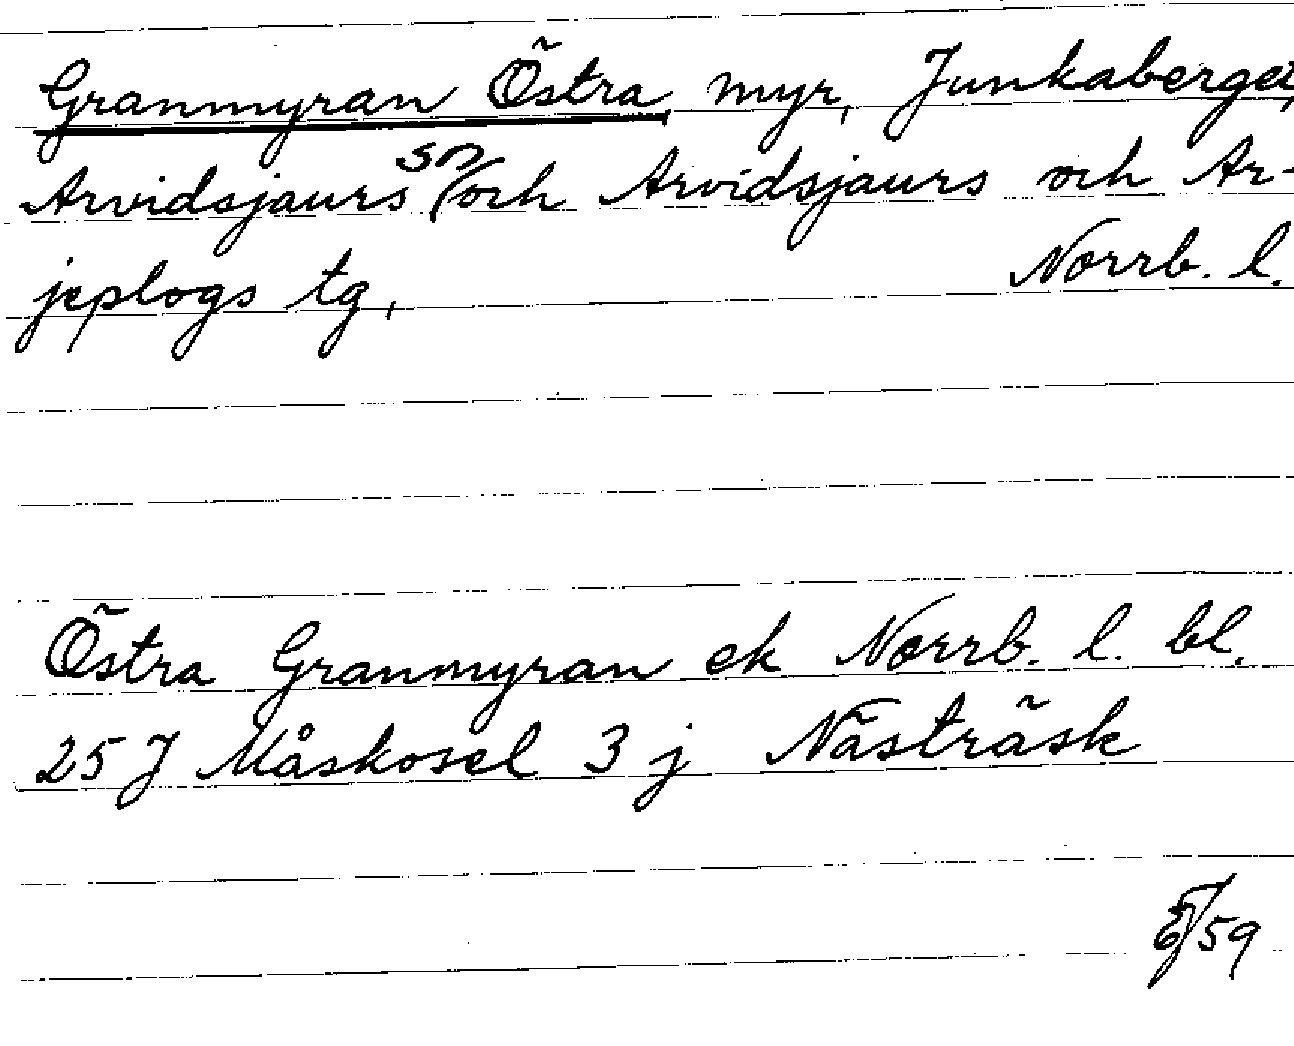 Granmyran Östra, myr, Junkaberget,
Arvidsjaurs sn och Arvidsjaurs och Ar-
jeplogs tg, Norrb. l.
Östra Granmyran ek Norrb. l. bl.
25 J Måskosel 3 j Nästräsk